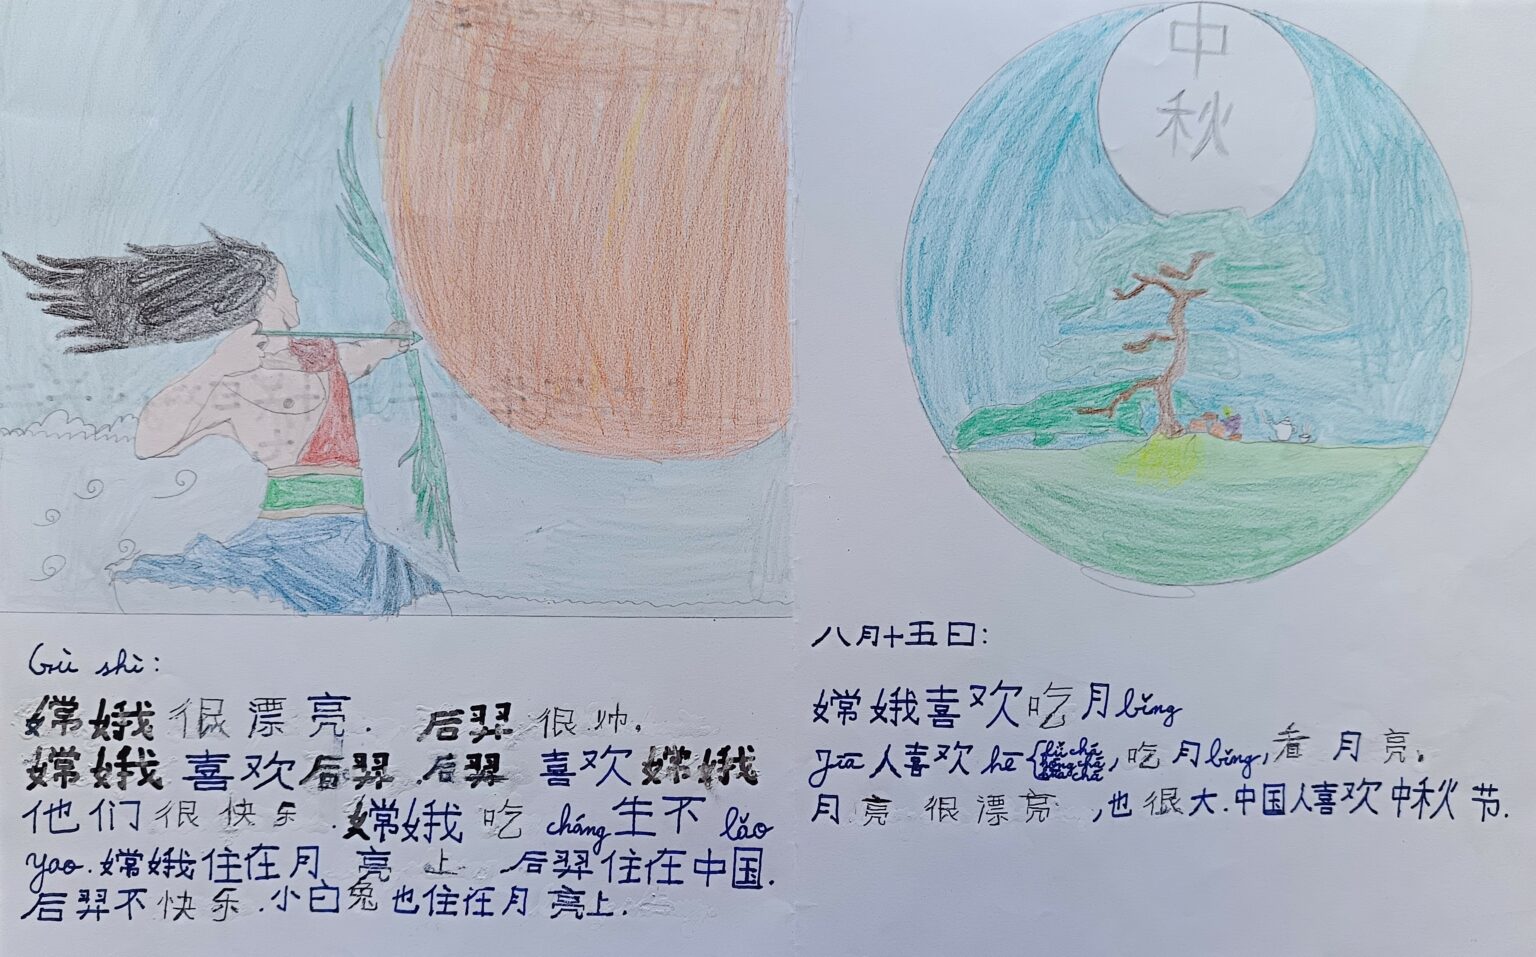 中
秋
Gù shì:
嫦娥很漂亮. 后羿很帅.
嫦娥喜欢后羿.后羿喜欢嫦娥
他们很快乐.嫦娥吃cháng生不lǎo
yao.嫦娥住在月亮上 后羿住在中国.
后羿不快乐.小白兔也住在月亮上.
八月十五日:
嫦娥喜欢吃月bǐng
Jiā人喜欢hē{ chá, 吃月bǐng, 看月亮.
月亮很漂亮,也很大.中国人喜欢中秋节.